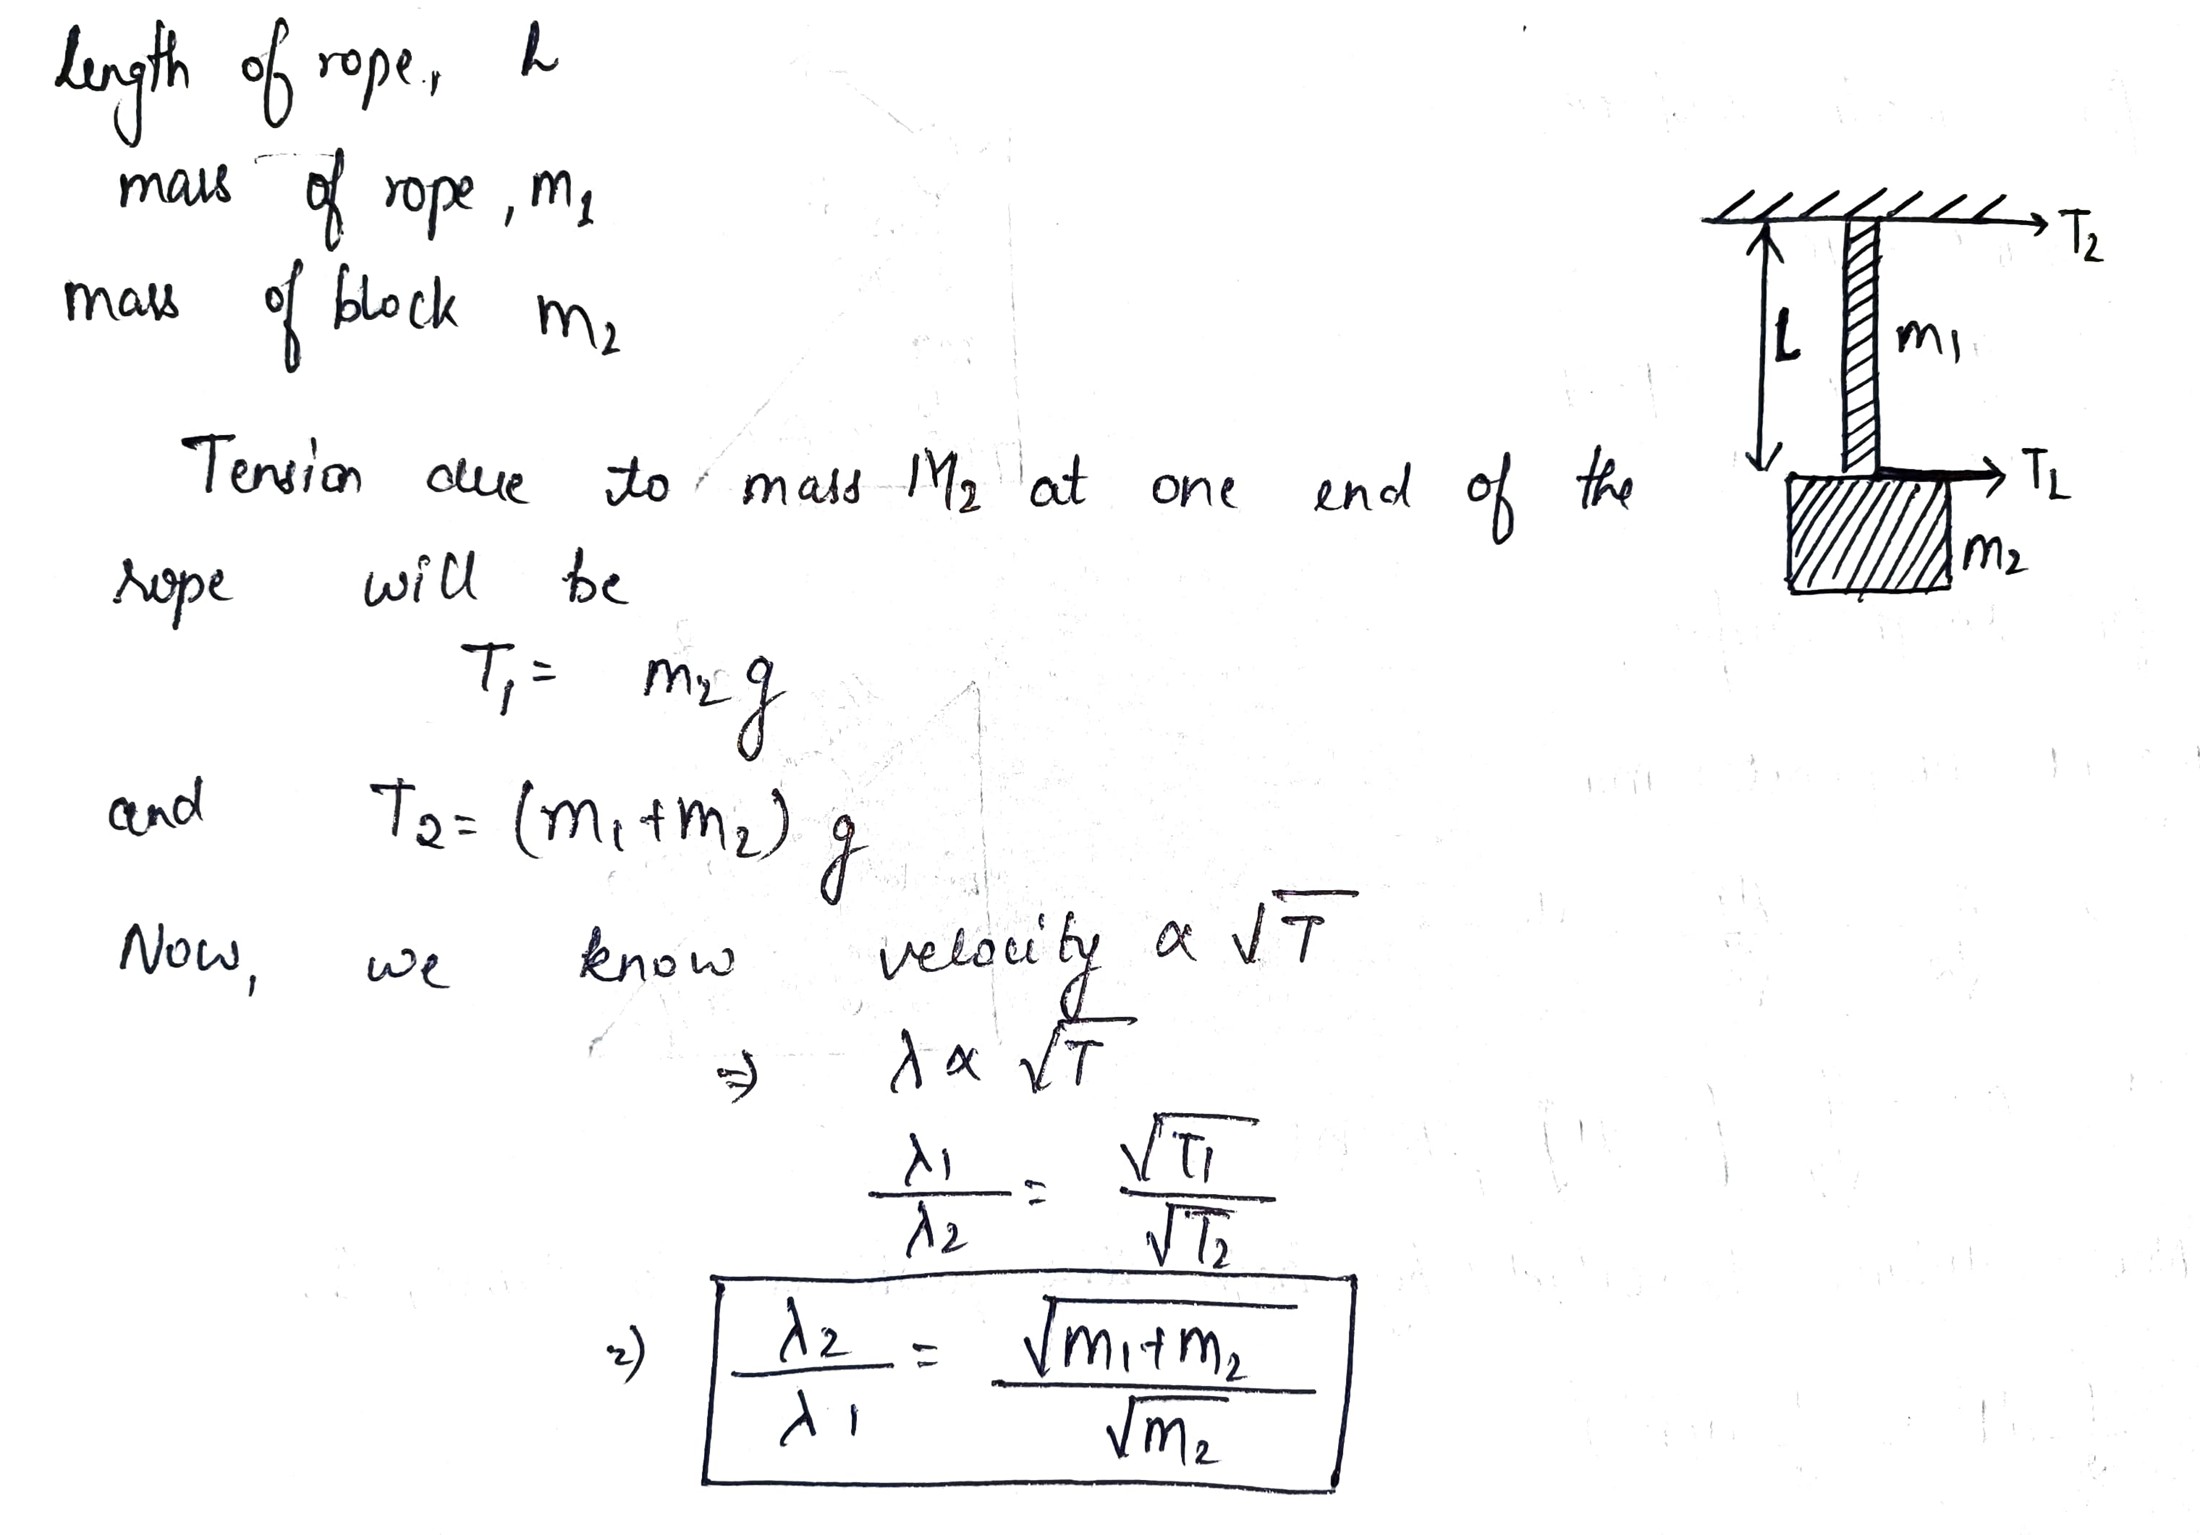 Length of rope, L
mass of rope, m1
mass of block m2
T2
L
m1
T1
m2
Tension due to mass M2 at one end of the
rope will be
T1 = m2 g
and T2 = (m1+m2) g
Now, we know velocity ∝ √T
⇒ λ ∝ √T
λ1/λ2 = √T1/√T2
⇒ λ2/λ1 = √m1+m2/√m2